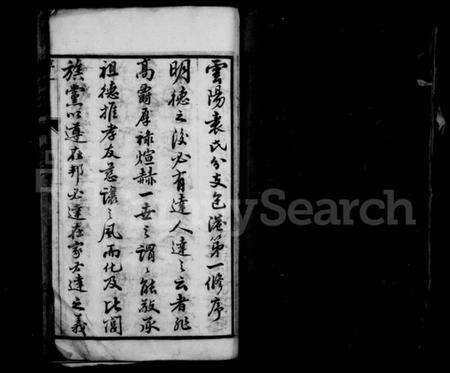 雲陽袁氏分支包港第一修序
明德之後必有達人達〻云者非
高爵厚祿煊赫一世之謂〻能敬承
祖德推孝友慈讓之風而化及比閭
族黨以達在邦必達在家必達之義
MySearch